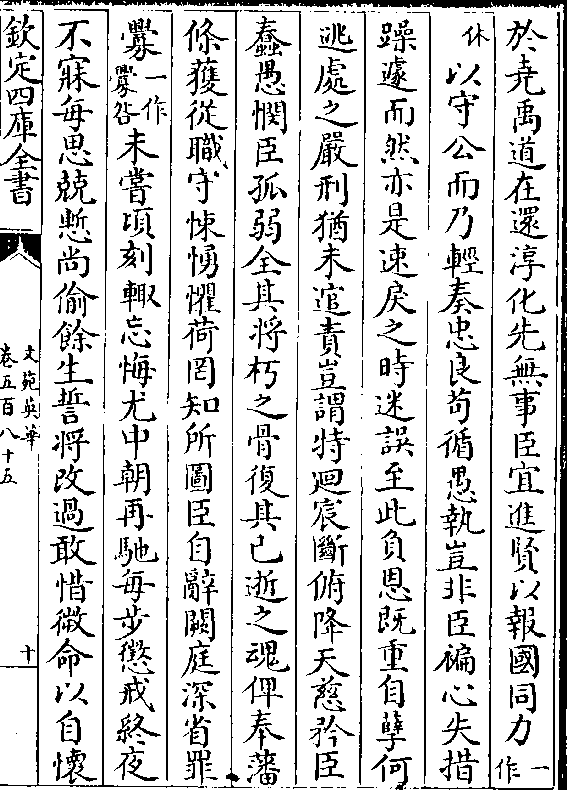 於堯禹道在還淳化先無事臣宜進賢以報國同力一作
休以守公而乃輕奏忠良苟循愚執豈非臣褊心失措
躁遽而然亦是速戾之時迷誤至此負恩既重自孽何
逃處之嚴刑猶未逭責豈謂特廻宸斷俯降天慈矜臣
蠢愚憫臣孤弱全其將朽之骨復其已逝之魂俾奉藩
條獲從職守悚恿懼荷罔知所圖臣自辭闕庭深省罪
釁一作釁咎未嘗頃刻輙忘悔尤中朝再馳每步懲戒終夜
不寐每思兢慙尚偷餘生誓將改過敢惜微命以自懷
欽定四庫全書
文苑英華
卷五百八十五
十